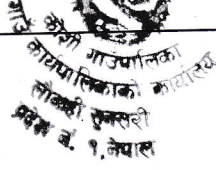 कोशी गाउँपालिका
कार्यपालिकाको कार्यालय
लौकही सुनसरी
प्रदेश नं. १, नेपाल